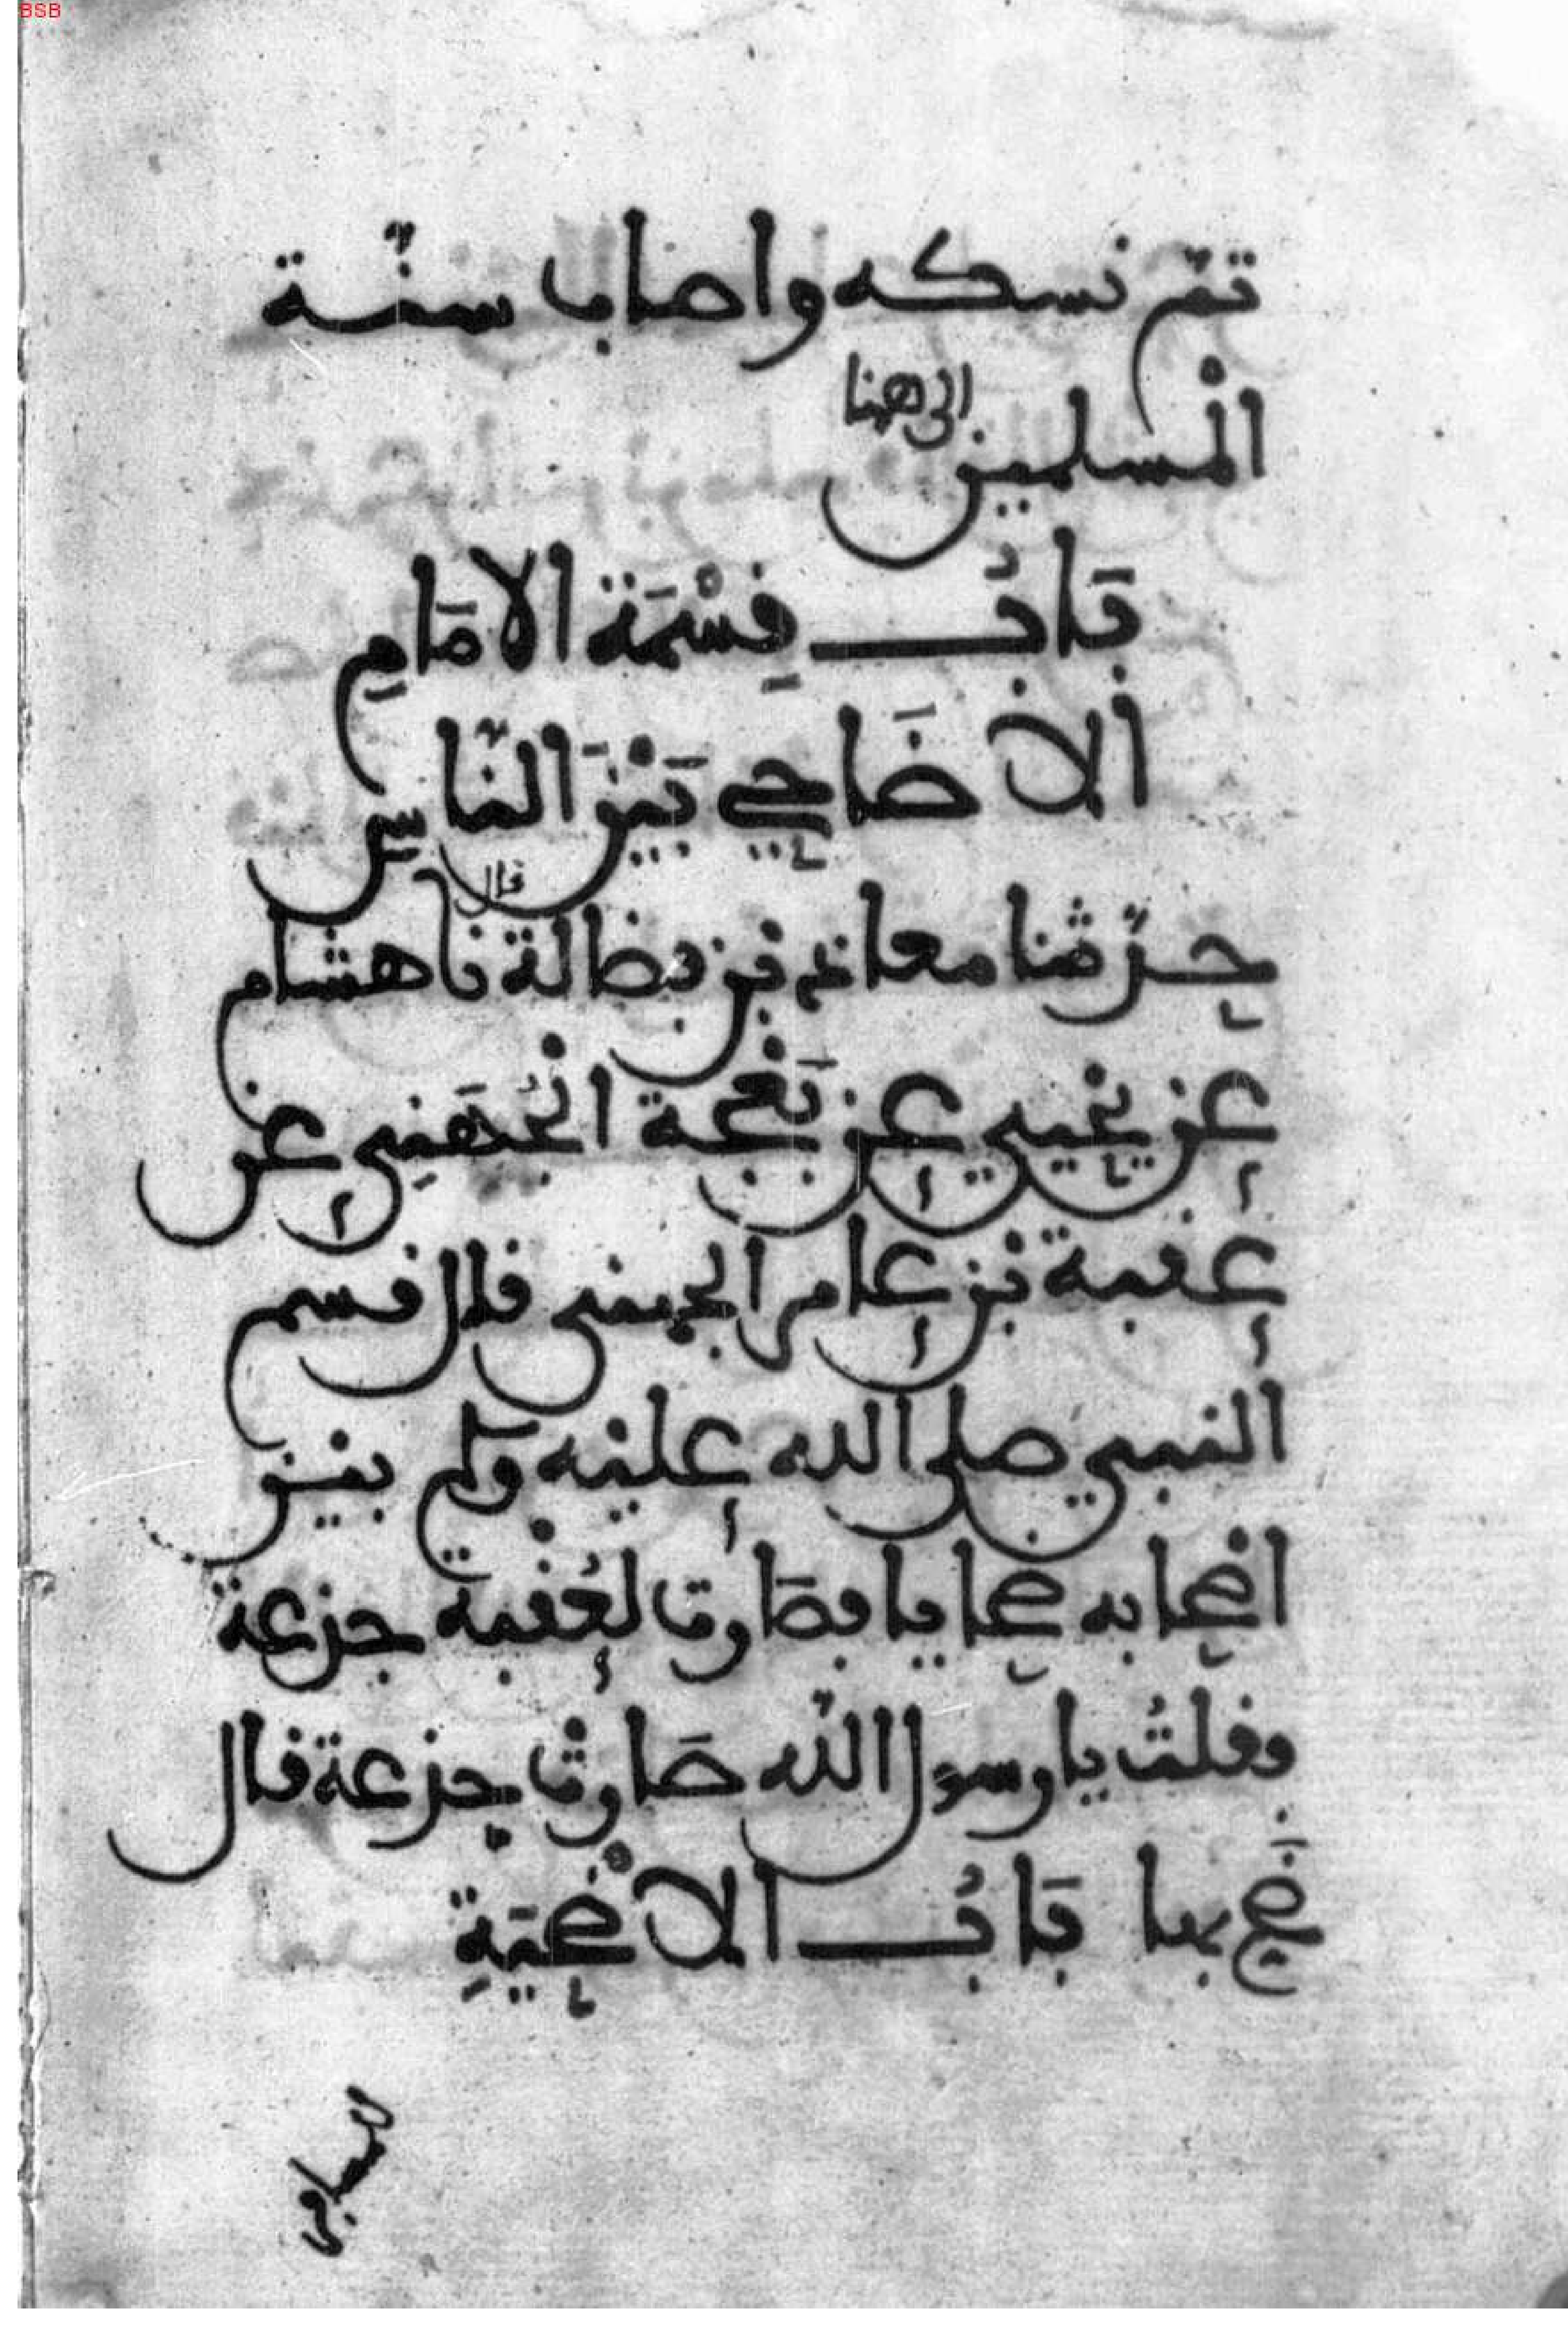 BSB
تمّ نسكه واصاب سنّة
المْسلمين الى ههنا
بَابُ قِسْمَة الامَامِ
اْلاضَاحِي بَيْنَ النّاسِ
حدّثنا معاذ بن فضالة نا هشام قال
عن يحْيى عن بَعْجة الْجُهَنِي عن
عقبة بن عامر الجهني قال قسم
النبي صلى الله عليه وسلم بين
اصْحابه ضحايا فصَارت لعُقْبة جذعة
فقلتُ يا رسول الله صَارتْ جذعة قال
ضَحّ بها بَابُ الاضْحِيَةِ
للمسافر